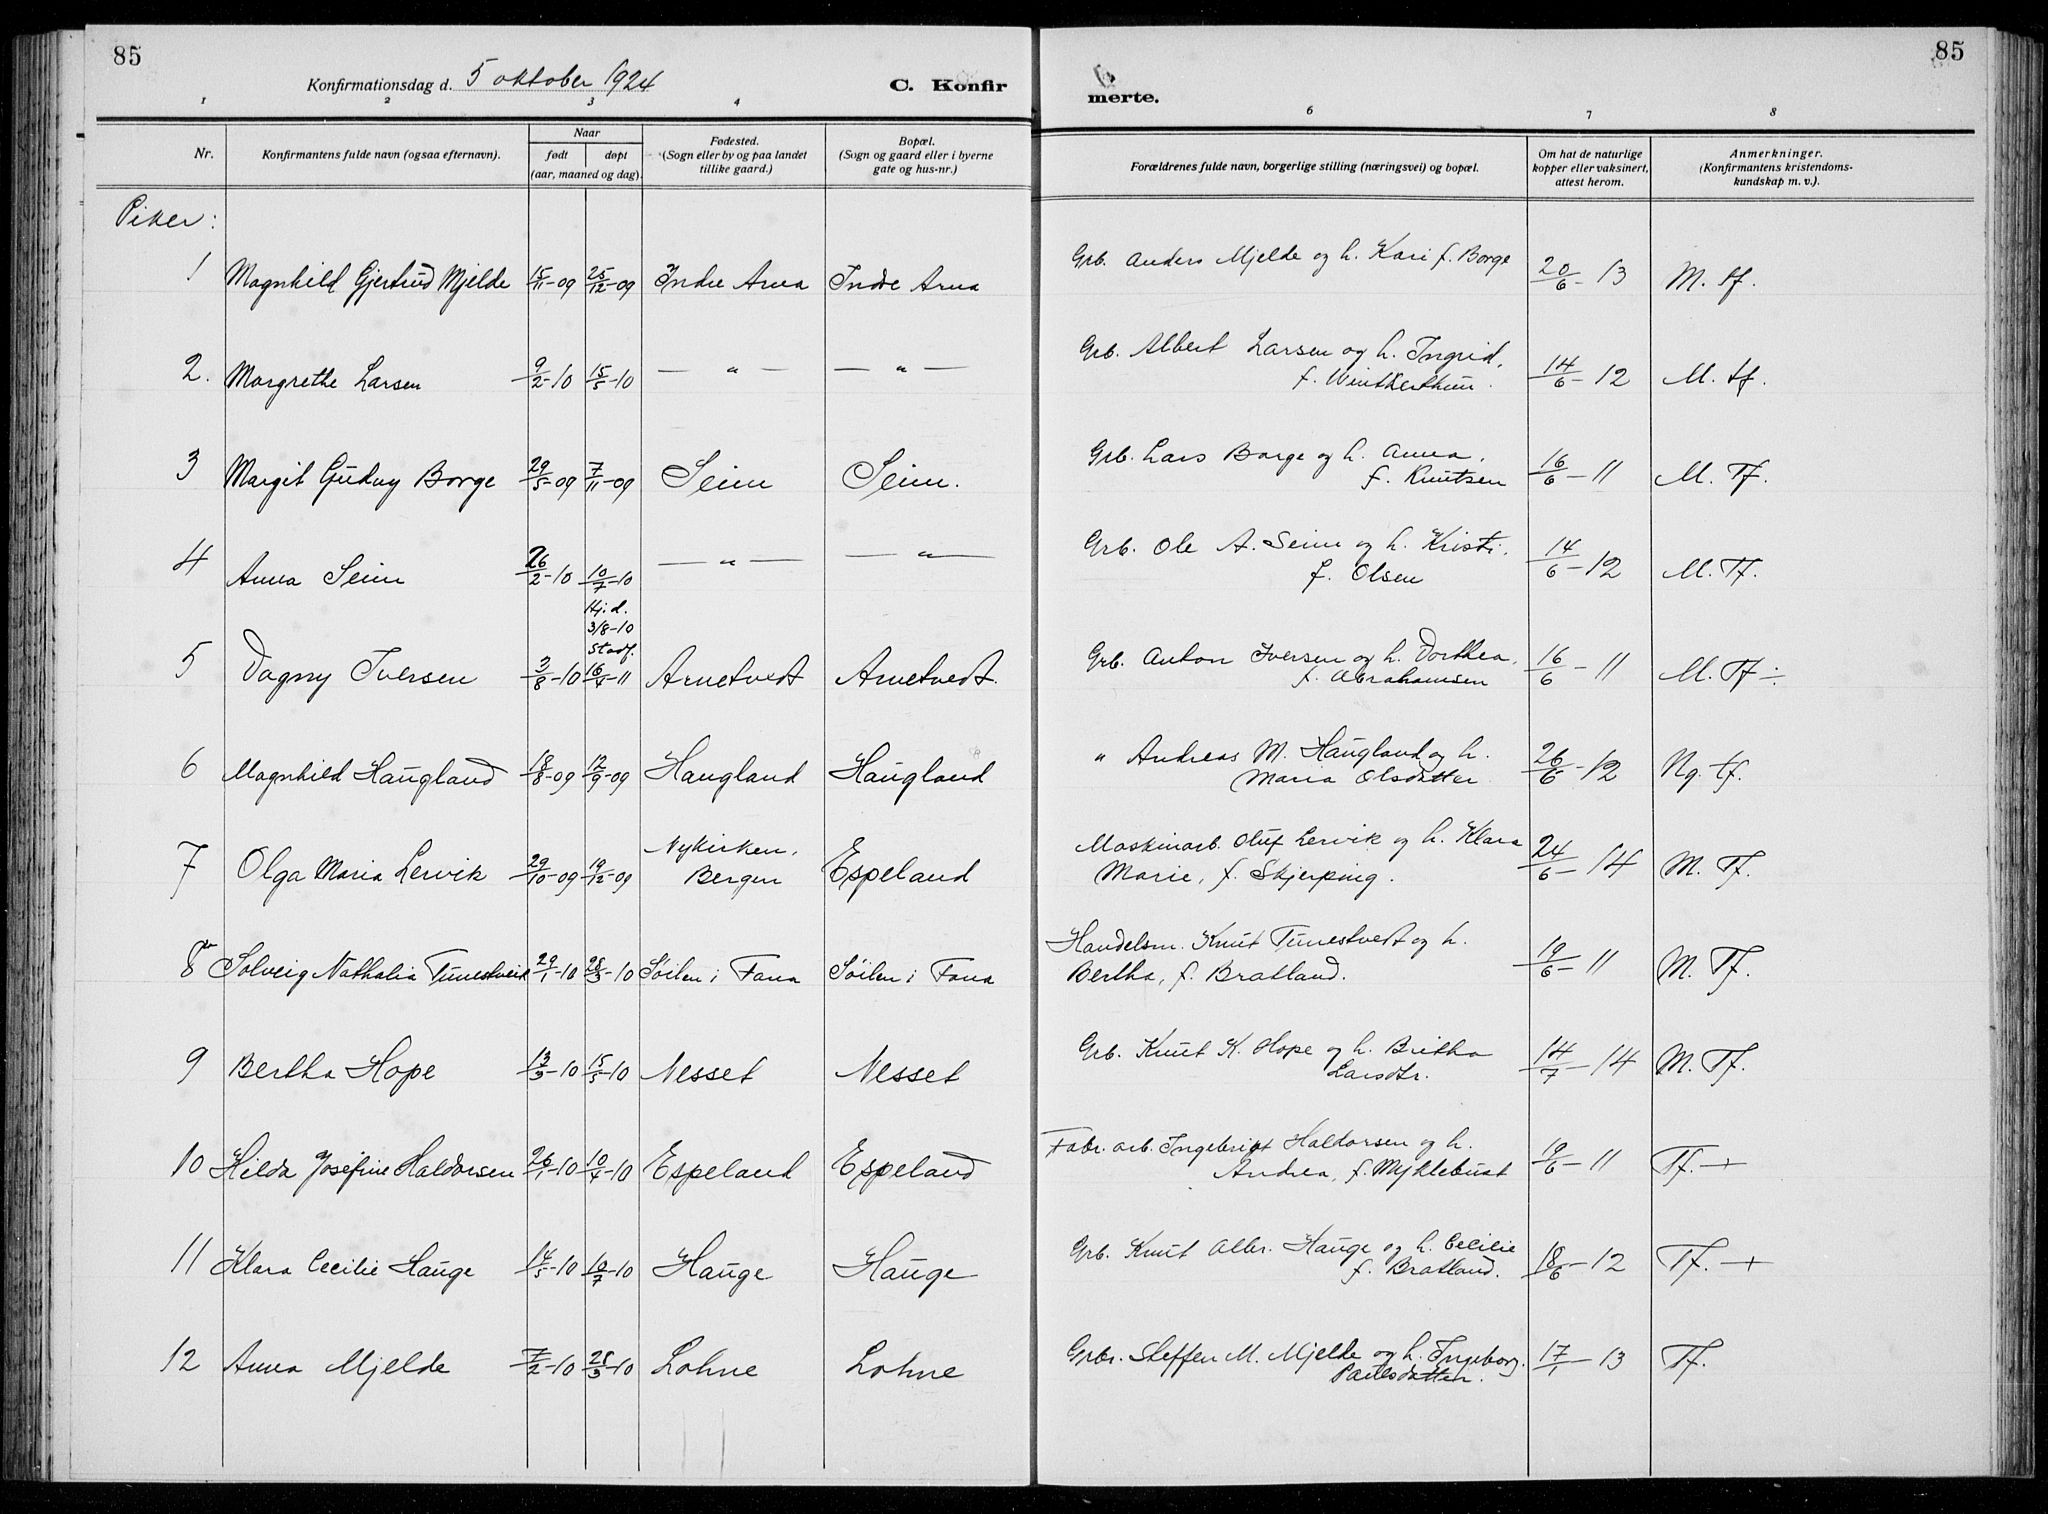 85
85
Konfirmationsdag d. 5 oktober 1924
C. Konfir
merte.
1 2 3 4 6 7 8
Nr.
Konfirmantens fulde navn (ogsaa efternavn).
Naar
født døpt
(aar, maaned og dag).
Fødested.
(Sogn eller by og paa landet
tillike gaard.)
Bopæl.
(Sogn og gaard eller i byerne
gate og hus-nr.)
Forældrenes fulde navn, borgerlige stilling (næringsvei) og bopæl.
Om hat de naturlige
kopper eller vaksinert,
attest herom.
Anmerkninger.
(Konfirmantens kristendoms-
kundskap m. v.).
Piker:
Grb. Anders Mjelde og h. Kari f. Borge
1 Magnhild Gjertrud Mjelde 15/11-09 25/12-09 Indre Arna Indre Arna 20/6-13 M. tf.
Grb. Albert Larsen og h. Ingrid,
2. Margrethe Larsen 9/2-10 15/5-10 — " — — " — f. Wintherthun. 14/6-12 M. tf.
Grb. Lars Borge og h. Anna,
3 Margit Gudny Borge 29/5-09 7/11-09 Seim Seim. f. Knutsen 16/6-11 M. Tf.
Grb. Ole A. Seim og h. Kristi,
4 Anna Seim 26/2-10 10/7-10 — " — — " — f. Olsen 14/6-12 M. Tf.
Hj. d.
3/8-10
stadf.
Grb. Anton Iversen og h. Dorthea,
5 Dagny Iversen 3/8-10 16/4-11 Arnetvedt Arnetvedt. f. Abrahamsen 16/6-11 M. Tf ÷
" Andreas M. Haugland og h.
6 Magnhild Haugland 18/8-09 12/9-09 Haugland Haugland Maria Olsdatter 26/6-12 Ng. tf.
Nykirken, Maskinarb. Oluf Lervik og h. Klara
7 Olga Maria Lervik 29/10-09 19/12-09 Bergen Espeland Marie, f. Skjerping. 24/6-14 M. Tf.
Handelsm. Knut Tunestvedt og h.
8 Solveig Nathalia Tunestveit 29/1-10 28/3-10 Søilen i Fana Søilen i Fana Bertha, f. Bratland. 19/6-11 M. Tf.
Grb. Knut K. Hope og h. Britha
9 Bertha Hope 13/3-10 15/5-10 Nesset Nesset Larsdtr. 14/7-14 M. Tf.
Fabr. arb. Ingebrigt Haldorsen og h.
10 Hilda Josefine Haldorsen 26/1-10 10/4-10 Espeland Espeland Andrea, f. Myklebust 19/6-11 Tf. +
Grb. Knut Albr. Hauge og h. Cecilie
11 Klara Cecilie Hauge 14/5-10 10/7-10 Hauge Hauge f. Bratland. 18/6-12 Tf. +
Grbr. Steffen M. Mjelde og h. Ingeborg
12 Anna Mjelde 7/2-10 28/3-10 Lohne Lohne Paulsdatter. 17/1-13 Tf.